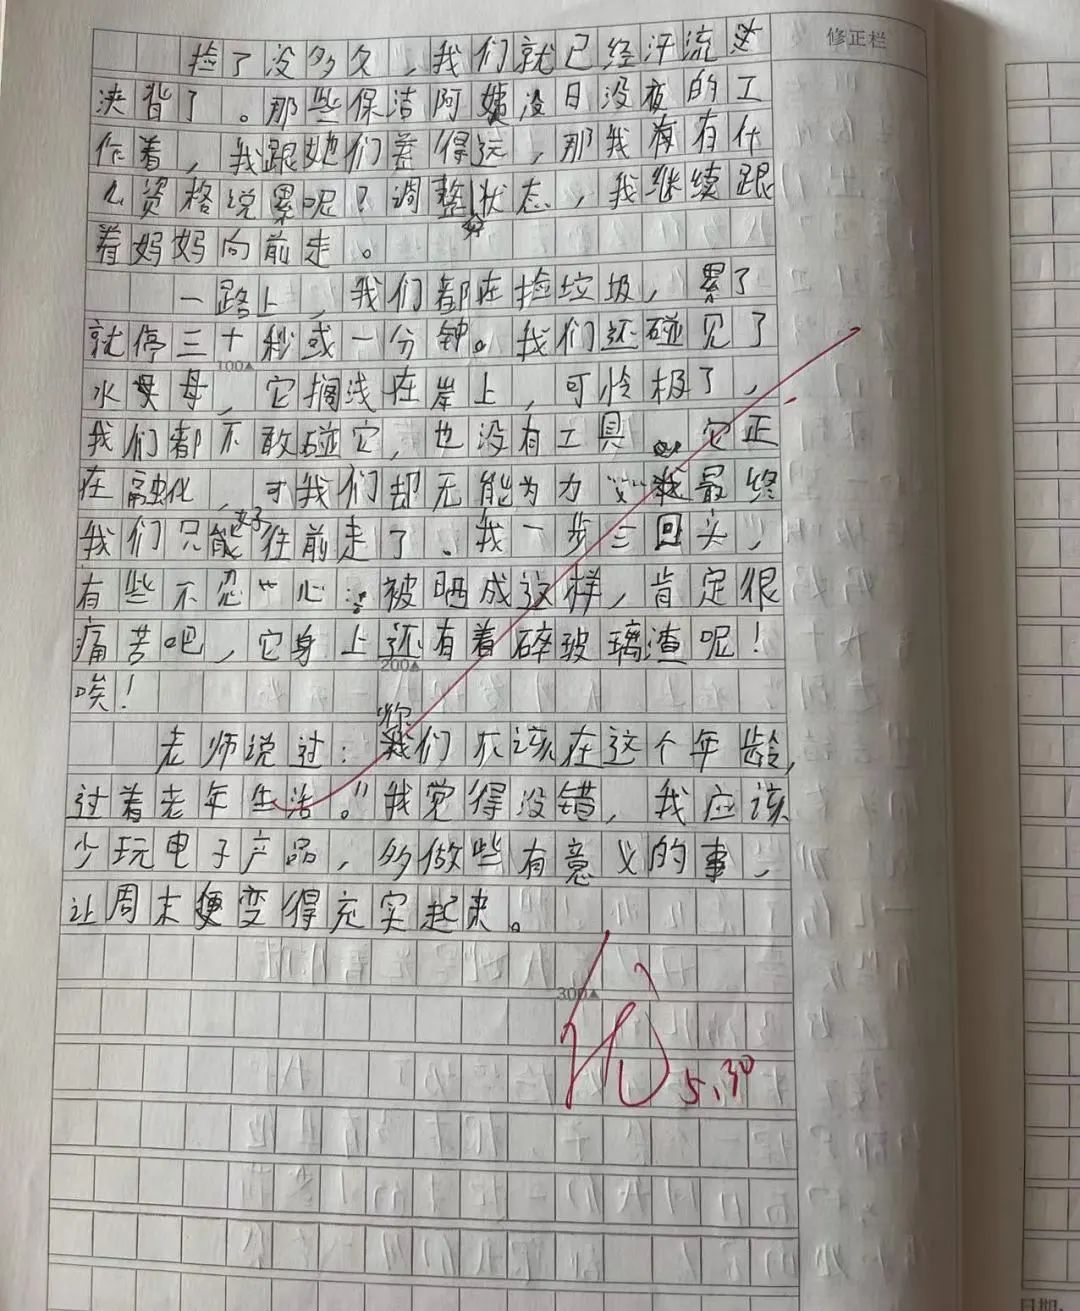 修正栏
捡了没多久，我们就已经汗流
浃背了。那些保洁阿姨没日没夜的工
作着，我跟她们差得远，那我有什
么资格说累呢？调整状态，我继续跟
着妈妈向前走。
一路上，我们都在捡垃圾，累了
就停三十秒或一分钟。我们还碰见了
100▲
水母，它搁浅在岸上，可怜极了，
我们都不敢碰它，也没有工具。它正
在融化，可我们却无能为力……最终
我们只能好往前走了。我一步三回头，
有些不忍心：被晒成这样，肯定很
痛苦吧，它身上还有着碎玻璃渣呢！
200▲
唉！
老师说过：“你们不该在这个年龄，
过着老年生活。”我觉得没错，我应该
少玩电子产品，多做些有意义的事，
让周末变得充实起来。
300▲
优
5.30
日期：